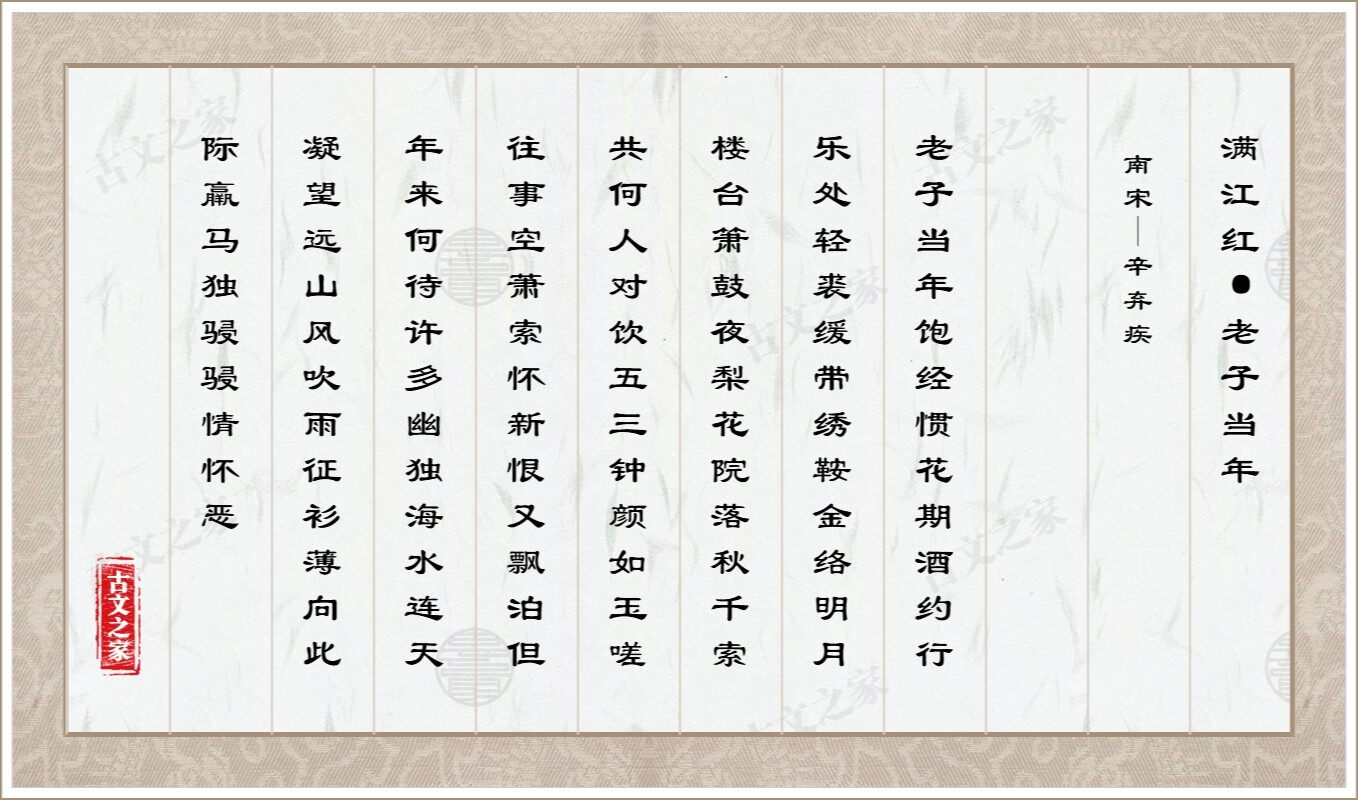 满江红●老子当年
南宋—辛弃疾
老子当年饱经惯花期酒约行
乐处轻裘缓带绣鞍金络明月
楼台箫鼓夜梨花院落秋千索
共何人对饮五三钟颜如玉嗟
往事空萧索怀新恨又飘泊但
年来何待许多幽独海水连天
凝望远山风吹雨征衫薄向此
际羸马独骎骎情怀恶
古文之家
古文之家
古文之家
古文之家
古文之家
古文之家
古文之家